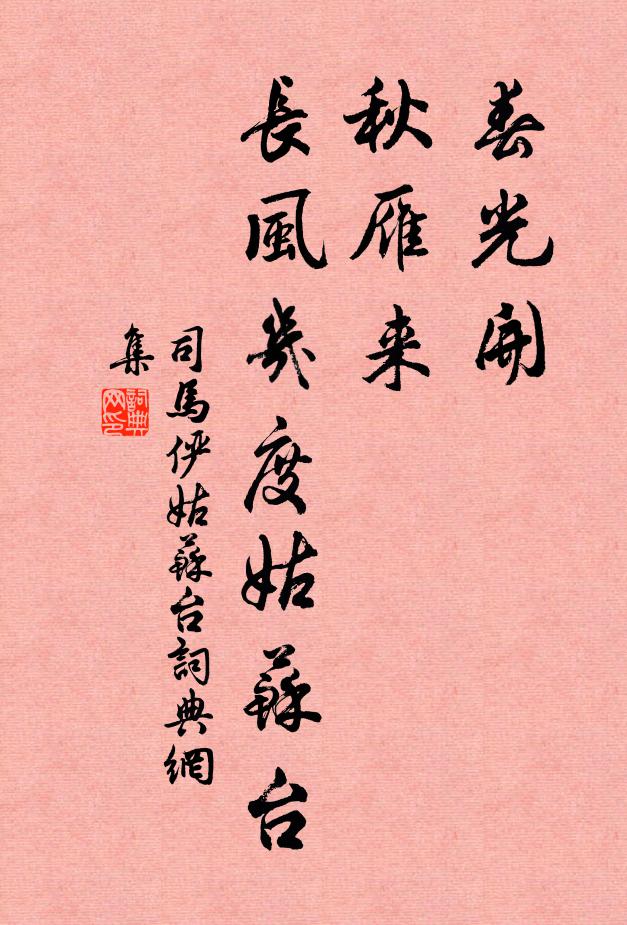 春光開
秋雁来
長風幾度姑蘇台
司馬伊姑蘇台詞典網
集
詞典
网印